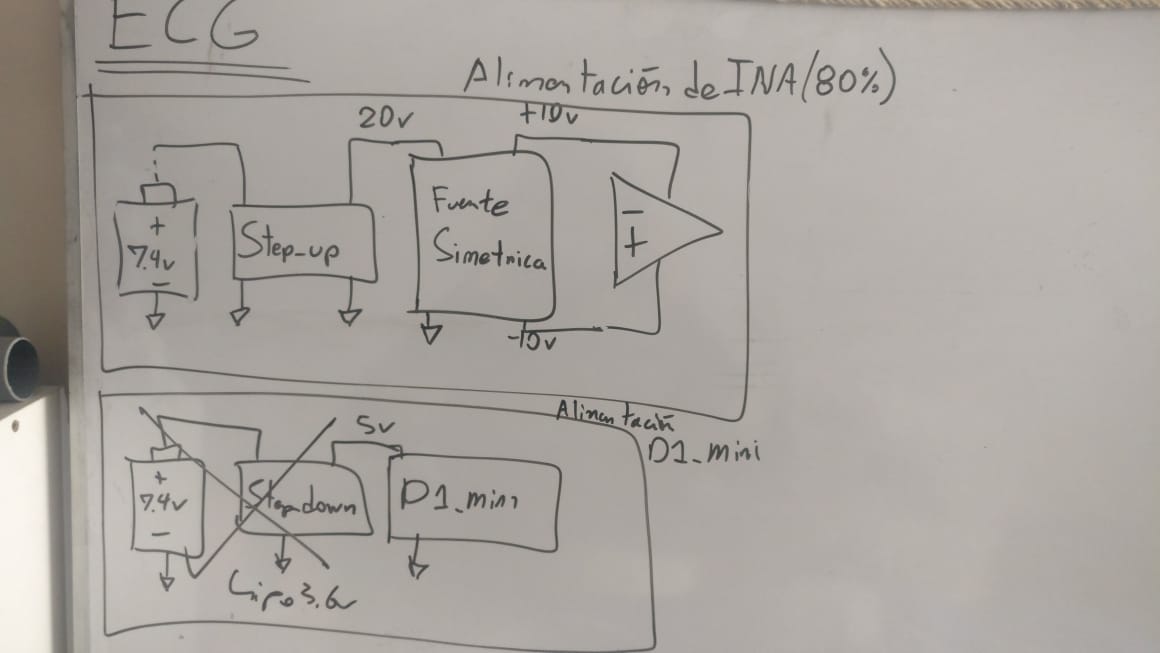 ECG
Alimentación de INA (80%)
20v
+10v
+
7.4v
-
Step-up
Fuente
Simetrica
-
+
-10v
Alimentación
D1_mini
5v
+
7.4v
-
Stepdown
D1_mini
Lipo 3.6v